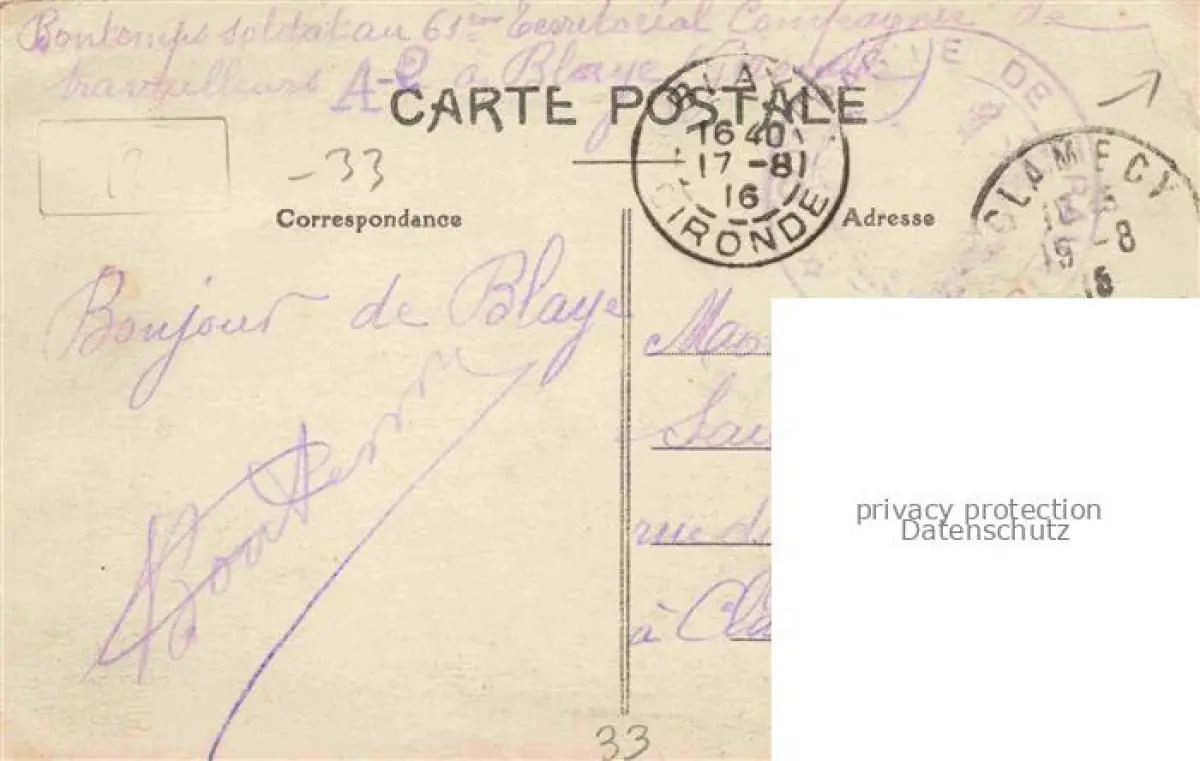 Bontemps soldat au 61ème Territorial Compagnie de
travailleurs A-2 à Blaye Gironde
CARTE POSTALE
BLAYE
16 40
17 -8
16
GIRONDE
CLAMECY
19 -8
16
-33
Correspondance
Adresse
Bonjour de Blaye
Bontemps
rue du
à Cla
privacy protection
Datenschutz
33